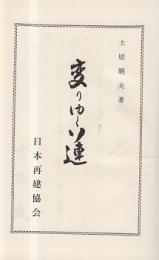 土居明夫著
変りゆくソ連
日本再建協会